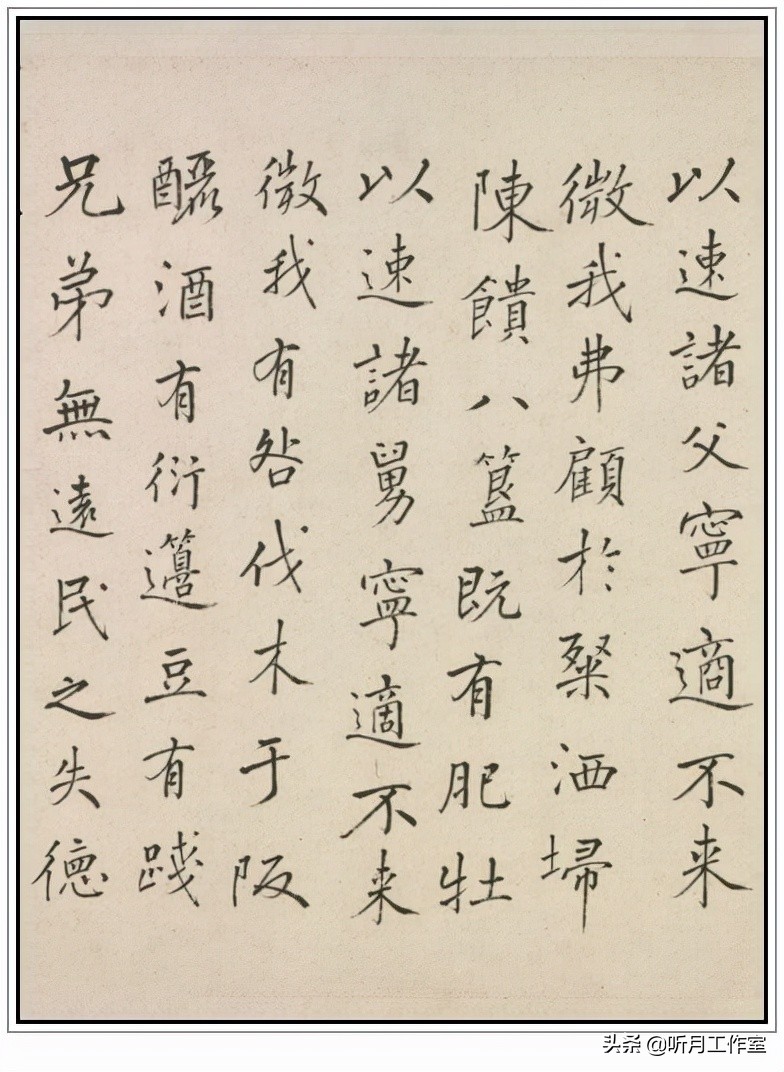 以速諸父寧適不来
微我弗顧於粲洒埽
陳饋八簋既有肥牡
以速諸舅寧適不来
微我有咎伐木于阪
釃酒有衍籩豆有踐
兄弟無遠民之失德
头条 @听月工作室